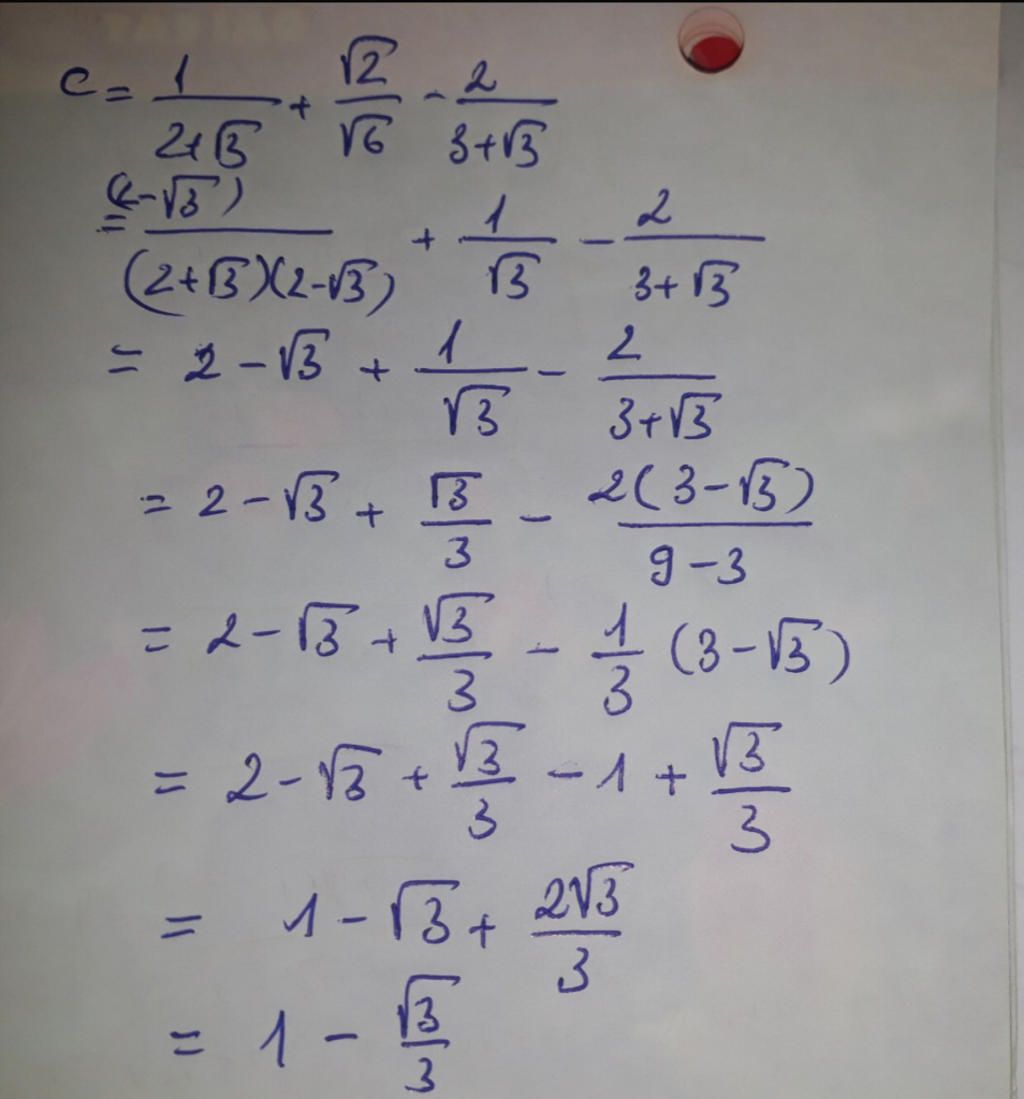 C = 1/(2+√3) + √2/√6 - 2/(3+√3)
= (2-√3)/((2+√3)(2-√3)) + 1/√3 - 2/(3+√3)
= 2-√3 + 1/√3 - 2/(3+√3)
= 2-√3 + √3/3 - 2(3-√3)/(9-3)
= 2-√3 + √3/3 - 1/3 (3-√3)
= 2-√3 + √3/3 - 1 + √3/3
= 1-√3 + 2√3/3
= 1 - √3/3